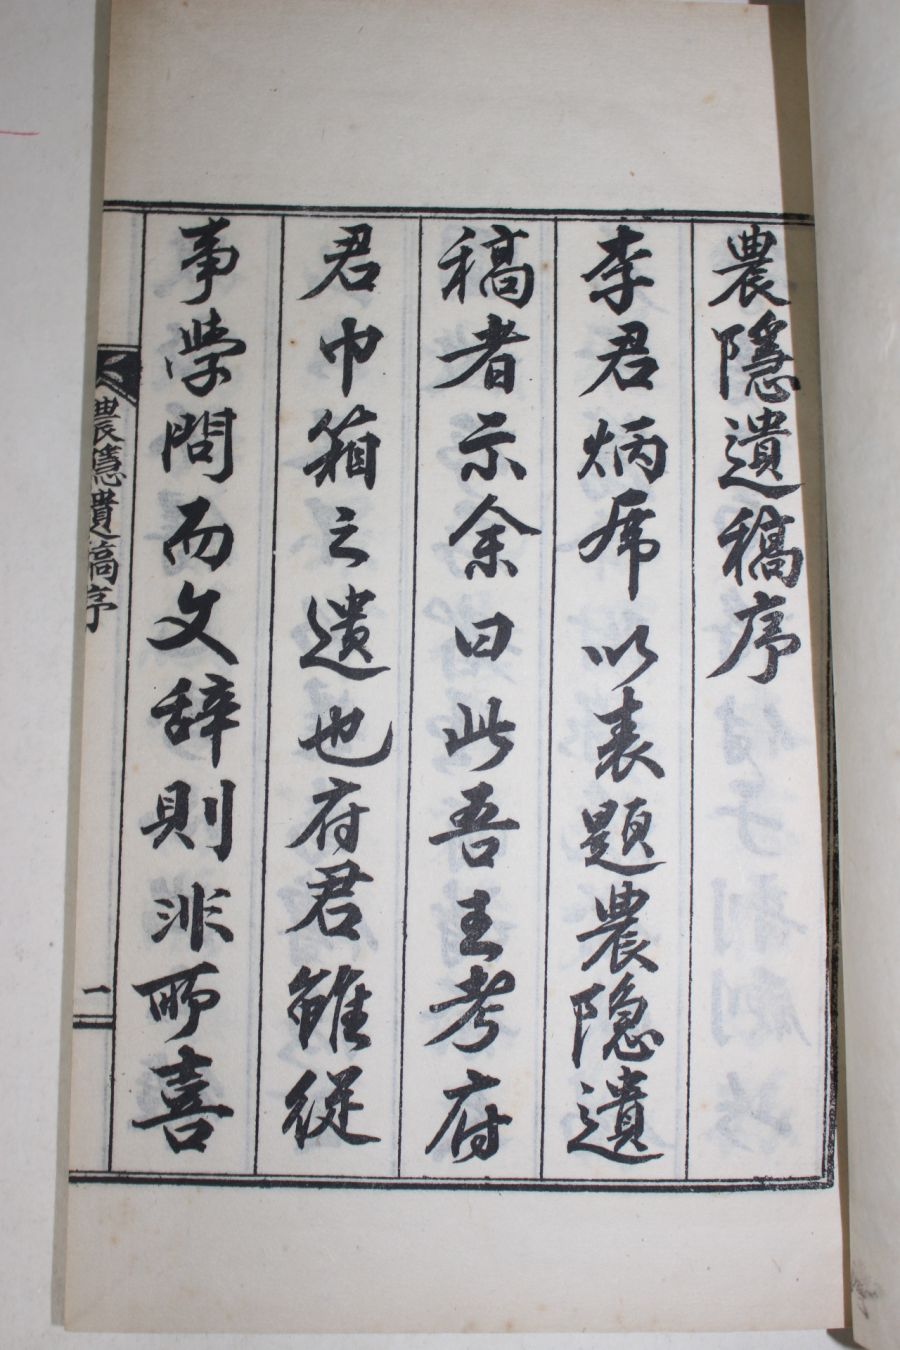 農隱遺稿序
李君炳以表題農隐遺
稿者示余曰此吾王考府
君巾箱之遺也府君雖從
事學問而文辞則非所喜
農隱遺稿序
一